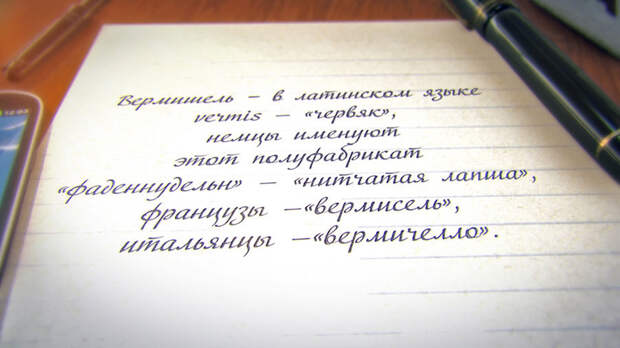 Вермишель – в латинском языке
vermis – «червяк»,
немцы именуют
этот полуфабрикат
«фаденнудельн» – «нитчатая лапша»,
французы –«вермисель»,
итальянцы –«вермичелло».